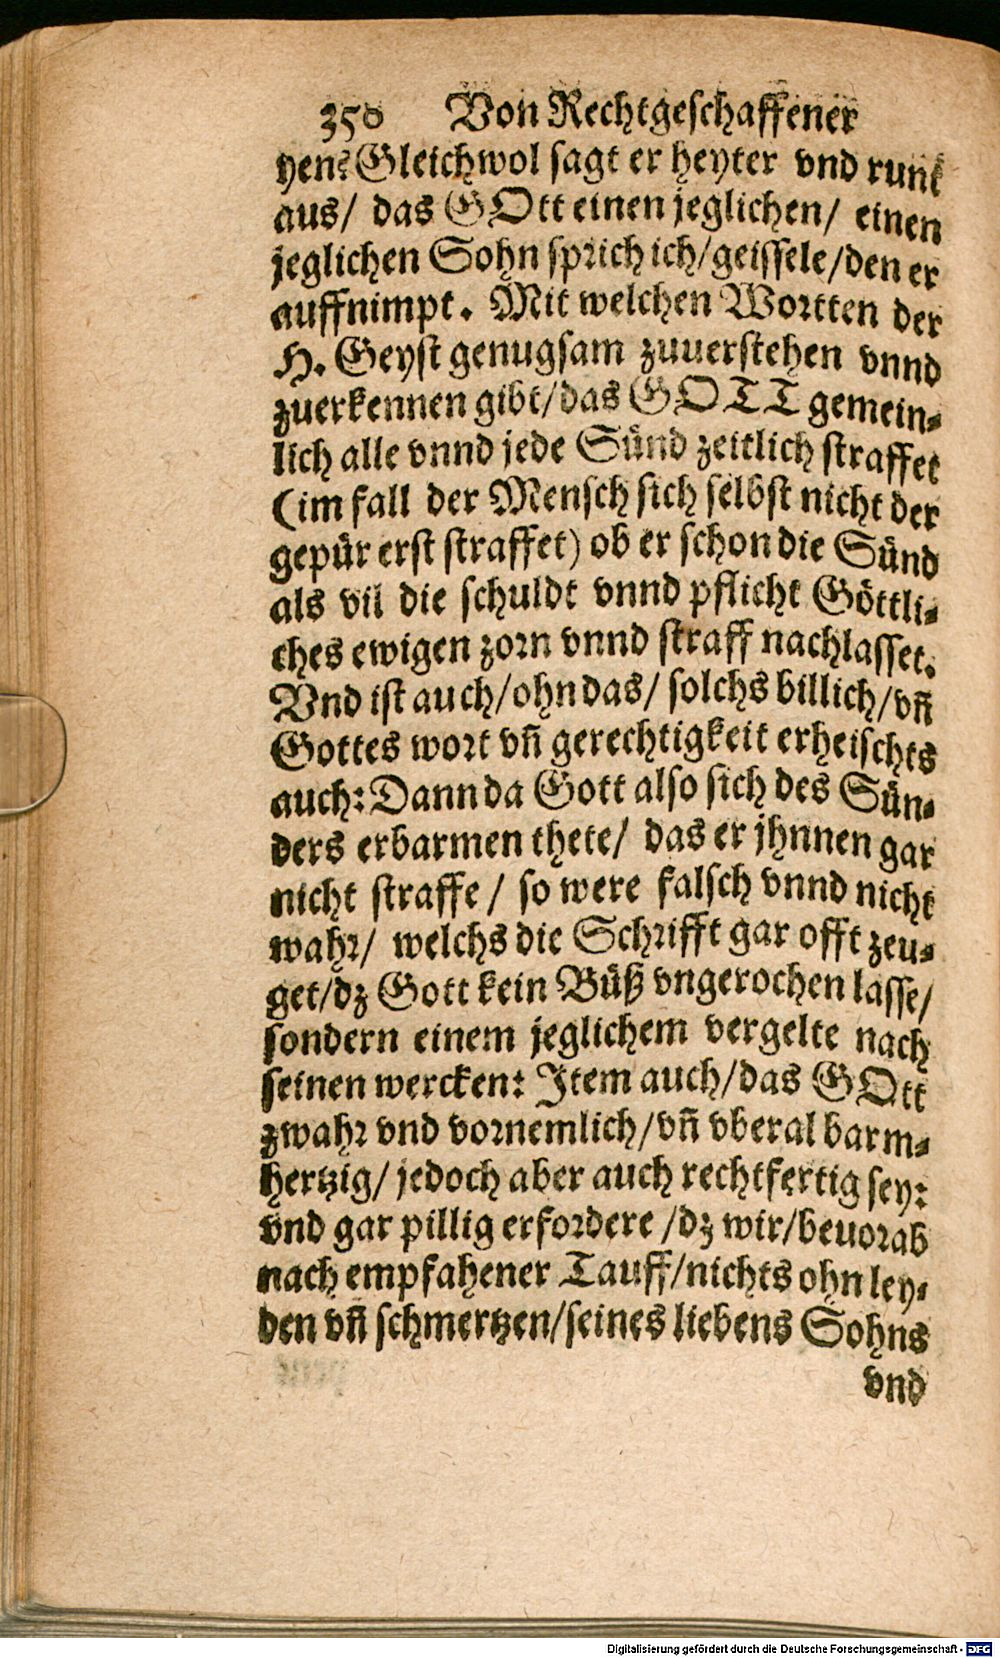 350 Von Rechtgeschaffener
yen? Gleichwol sagt er heyter vnd runt
aus/ das GOtt einen jeglichen/ einen
jeglichen Sohn sprich ich/geissele/den er
auffnimpt. Mit welchen Wortten der
H. Geyst genugsam zuuerstehen vnnd
zuerkennen gibt/das GOTT gemein-
lich alle vnnd jede Sünd zeitlich straffet
(im fall der Mensch sich selbst nicht der
gepür erst straffet) ob er schon die Sünd
als vil die schuldt vnnd pflicht Göttli-
ches ewigen zorn vnnd straff nachlasset.
Vnd ist auch/ohn das/ solchs billich/vñ
Gottes wort vñ gerechtigkeit erheischts
auch: Dann da Gott also sich des Sün-
ders erbarmen thete/ das er jhnnen gar
nicht straffe/ so were falsch vnnd nicht
wahr/ welchs die Schrifft gar offt zeu-
get/dz Gott kein Büß vngerochen lasse/
sondern einem jeglichem vergelte nach
seinen wercken: Item auch/das GOtt
zwahr vnd vornemlich/vñ vberal barm-
hertzig/ jedoch aber auch rechtfertig sey:
vnd gar pillig erfordere/dz wir/beuorab
nach empfahener Tauff/nichts ohn ley-
den vñ schmertzen/seines liebens Sohns
vnd
Digitalisierung gefördert durch die Deutsche Forschungsgemeinschaft - DFG